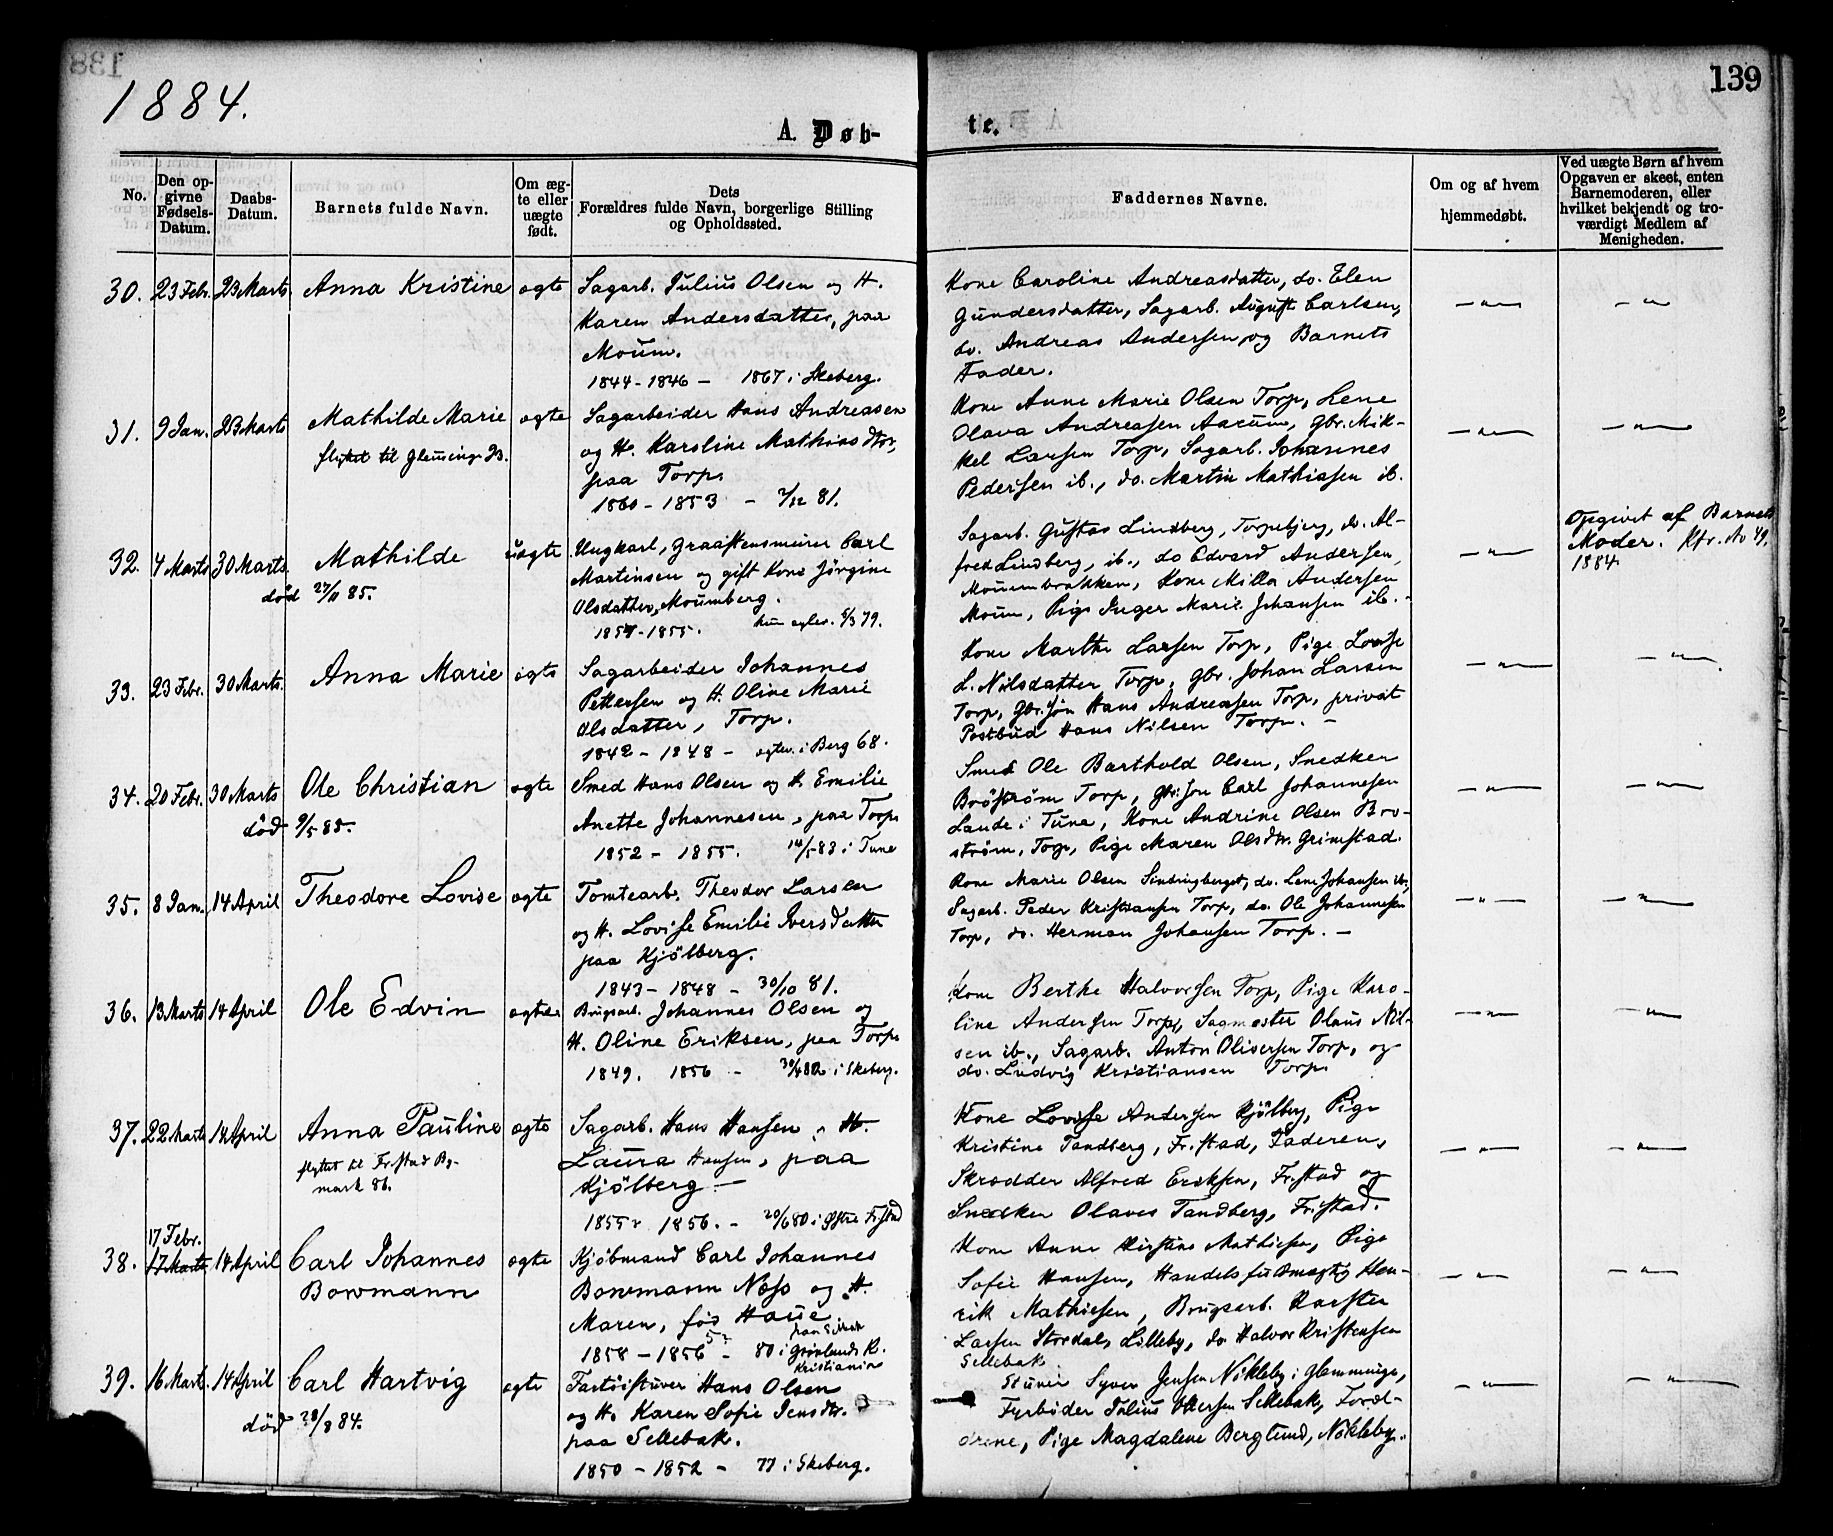 138
1884.
139
A. Døb-
te.
No.
Den op-
givne
Fødsels-
Datum.
Daabs-
Datum.
Barnets fulde Navn.
Om æg-
te eller
uægte
født.
Dets
Forældres fulde Navn, borgerlige Stilling
og Opholdssted.
Faddernes Navne.
Om og af hvem
hjemmedøbt.
Ved uægte Børn af hvem
Opgaven er skeet, enten
Barnemoderen, eller
hvilket bekjendt og tro-
værdigt Medlem af
Menigheden.
30. 23 Febr. 23 Marts. Anna Kristine ægte
Sagarb. Julius Olsen og H.
Karen Andersdatter, paa
Moum.
1844 - 1846 - 1867 i Skeberg.
Kone Caroline Andreasdatter, do. Elen
Gundersdatter, Sagarb. August Carlsen,
do. Andreas Andersen, og Barnets
Fader.
— " — — " —
31. 9 Jan. 23 Marts Mathilde Marie ægte
flyttet til Glemminge
Sagarbeider Hans Andreasen
og H. Karoline Mathiasdtr,
paa Torp.
1860 - 1853 - 81.
Kone Anne Marie Olsen Torp, Lene
Olava Andreasen Aarum, Gbr. Mik-
kel Larsen Torp, Sagarb. Johannes
Pedersen ib., do. Martin Mathiasen ib.
— " — — " —
32. 4 Marts 30 Marts. Mathilde uægte
død 27/11 85.
Ungkarl, Graastensminerer Carl
Martinsen og gift Kone Jörgine
Olsdatter, Moumberg.
1857 - 1855. 5/3 79.
Sagarb. Gustav Lindberg, Torpebjerg, do. Al-
fred Lindberg, ib., do Edvard Andersen,
Moumbrakken, Kone Milla Andersen
Moum, Pige Inger Marie Johansen ib. -
— " —
Opgivet af Barnets
Moder. Kfr. No 49,
1884.
33. 23 Febr. 30 Marts. Anna Marie ægte
Sagarbeider Johannes
Pettersen og H. Oline Marie
Olsdatter, Torp.
1842 - 1848 - i Berg 68.
Kone Marthe Larsen Torp, Pige Lovise
L. Nilsdatter Torp, Gbr. Johan Larsen
Torp, Gbr.søn Hans Andreasen Torp, privat
Postbud Hans Nilsen Torp. -
— " — — " —
34. 20 Febr. 30 Marts Ole Christian ægte
død 9/5 85.
Smed Hans Olsen og H. Emilie
Anette Johannesen, paa Torp.
1852 - 1855. 14/5 83 i Tune
Smed Ole Barthold Olsen, Snedker
Broström Torp, Gbr.søn Carl Johannesen
Lande i Tune, Kone Andrine Olsen Bro-
ström, Torp, Pige Maren Olsdtr. Grimstad.
— " — — " —
35. 8 Jan. 14 April Theodore Lovise ægte
Tomtearb. Theodor Larsen
og H. Lovise Emilie Iversdatter
paa Kjölberg.
1843 - 1848 - 30/10 81.
Kone Marie Olsen, do. Lene Johansen ib.,
Sagarb. Peder Kristiansen Torp, do. Ole Johannesen
Torp, do. Herman Johansen Torp. -
— " — — " —
36. 13 Marts 14 April Ole Edvin ægte
Brugsarb. Johannes Olsen og
H. Oline Eriksen, paa Torp.
1849. 1856 - i Skeberg.
Kone Berthe Halvorsen Torp, Pige Karo-
line Andersen Torp, Sagmester Olaus Nil-
sen ib., Sagarb. Anton Oliversen Torp, og
do. Ludvig Kristiansen Torp.
— " — — " —
37. 22 Marts 14 April Anna Pauline ægte
flyttet til Fr.stad By-
mark 86.
Sagarb. Hans Hansen og H.
Laura Hansen, paa
Kjölberg —
1855 - 1856. - 20/6 80 i Østre Fr.stad
Kone Lovise Andersen Kjölberg, Pige
Kristine Tandberg, Fr.stad, Faderen,
Skrædder Alfred Eriksen, Fr.stad og
Snedker Olaves Tandberg, Fr.stad.
— " — — " —
17 Febr.
38. 17 Marts 14 April Carl Johannes ægte
Bowmann
Kjöbmand Carl Johannes
Bowmann Næss og H.
Maren, fød Haüe
paa Sellebak
1858 - 1856 - 80 i Grönlands K.
Kristiania
Kone Anne Kirstine Mathisen, Pige
Sofie Hansen, Handelsfuldmægtig Hen-
rik Mathiesen, Brugsarb. Karsten
Larsen Stordal, Lilleby, do Halvor Kristensen
Sellebak
— " — — " —
39. 16 Marts. 14 April Carl Hartvig ægte
død 28/8 84.
Fartöistuver Hans Olsen
og H. Karen Sofie Jensdtr.
paa Sellebak.
1850 - 1852 - 77 i Skeberg.
Stuver Syver Jensen Nökleby i Glemminge,
Fyrböder Julius Ottersen Sellebak, Foræl-
drene, Pige Magdalene Berglund, Nökleby.
— " — — " —